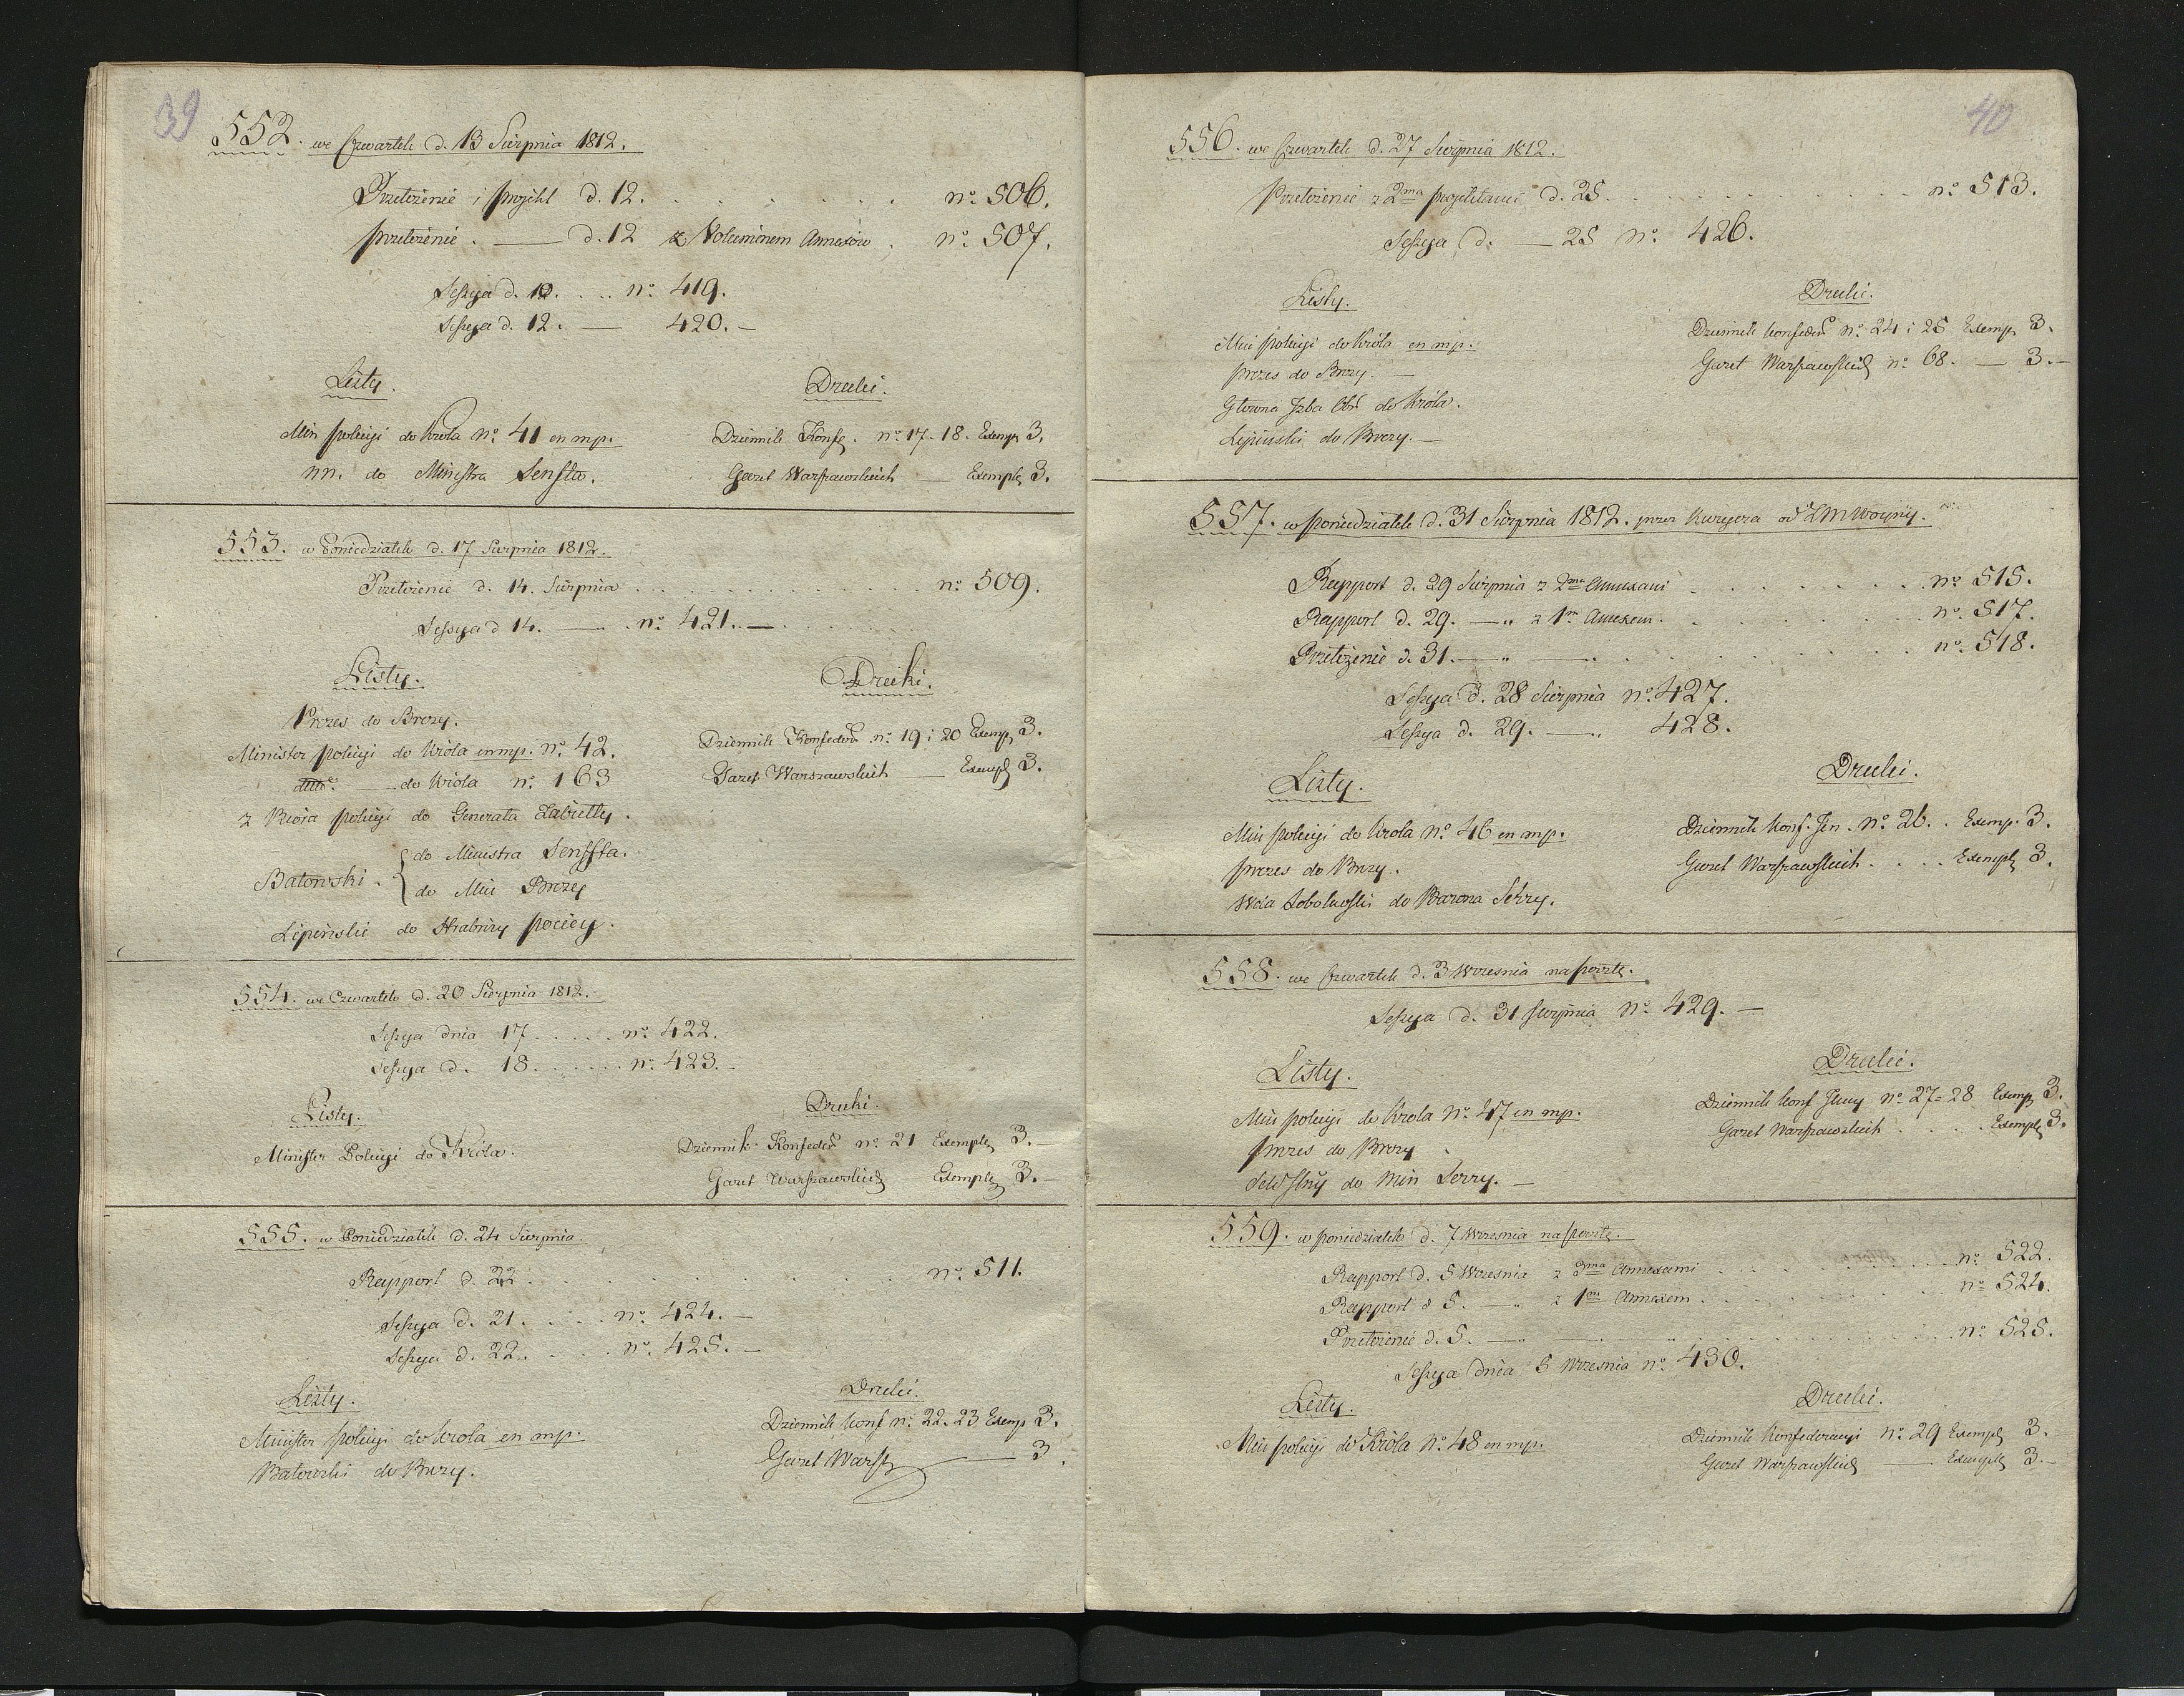 39
552. we Czwartek d. 13 Sierpnia 1812.
Przełożenie i projekt d. 12. . . . . . . nº. 506.
przełożenie. — d. 12 z Voluminem Annexów. nº. 507.
Seszya d. 10. . . . nº. 419.
Seszya d. 12. — 420. —
Listy.
Druki.
Min policyi do Króla nº. 41 en mp.
Dziennik Konfe. nº. 17. 18. Exemp 3.
nn. do Ministra Senfta.
Gazet Warszawskich — Exempl 3.
553. w Poniedziałek d. 17 Sierpnia 1812.
Przełożenie d. 14. Sierpnia . . . . . . . nº. 509.
Sessya d 14. — . nº. 421. —
Listy.
Druki.
Prezes do Brezy.
Minister policyi do Króla en mp. nº. 42.
Dziennik Konfeder nº. 19 i 20 Exemp 3.
do Króla nº. 163
Gazet Warszawskich — Exempl 3.
z Biora policyi do Generała Labietty.
Batowski. { do Ministra Senffta.
do Min Brezy
Lipinski do Hrabiny pociey.
554. we Czwartek d. 20 Sierpnia 1812.
Seszya dnia 17 . . . . . nº. 422.
Seszya d. 18. . . . . . nº. 423. -
Listy.
Druki.
Minister Policyi do Króla.
Dziennik Konfeder nº. 21 Exempl 3. —
Gazet Warszawskich Exempl 3. —
555. w Poniedziałek d. 24 Sierpnia.
Rapport d. 22 . . . . . . . . nº. 511.
Seszya d. 21. . . . nº. 424. —
Seszya d. 22. . . . nº. 425. —
Listy.
Druki.
Minister policyi do Krola en mp.
Dziennik Konf nº. 22. 23 Exemp 3.
Batowski do Brezy.
Gazet Warsz — 3.
40
556. we Czwartek d. 27 Sierpnia 1812.
Przełożenie z 2ma projektami d. 25. . . . . . . nº. 513.
Seszya d. — 25 nº. 426.
Listy.
Druki.
Min policyi do Króla en mp.
Dziennik konfeder nº. 24 i 25 Exemp 3.
prezes do Brezy. —
Gazet Warszawskich nº. 68. — 3. —
Głowna Izba Obr do Króla.
Lipinski do Brezy. —
557. w poniedziałek d. 31 Sierpnia 1812. przez Kuryera od Z M Woyny.
Rapport d. 29 Sierpnia z 2ma Annexami . . . . . nº. 515.
Rapport d. 29. — „ z 1m Annexem. . . . . . nº. 517.
Przełożenie d. 31. — „ — . . . . . nº. 518.
Seszya d. 28 Sierpnia nº. 427.
Seszya d. 29. — „ 428.
Listy.
Druki.
Min policyi do Krola nº. 46 en mp.
Dziennik Konf. Jen. nº. 26. . Exemp. 3.
prezes do Brezy.
Gazet Warszawskich. . . . Exempl 3.
Wda Sobolewski do Barona Serry.
558. we Czwartek d. 3 Wrzesnia na pocztę.
Seszya d. 31 Sierpnia nº. 429. —
Listy.
Druki.
Min policyi do Krola nº. 47 en mp.
Dziennik Konf Jlney nº. 27 = 28 Exemp 3.
prezes do Brezy
Gazet Warszawskich . . . . Exempl 3.
do Min Serry. —
559. w poniedziałek d. 7 Wrzesnia na pocztę.
Rapport d. 5 Wrzesnia z 3ma Annexami . . . . . nº. 522.
Rapport d 5. — „ z 1m Annexem . . . . . . nº. 524.
Przełożenie d. 5. — „ — . . . . . nº. 525.
Seszya dnia 5 Wrzesnia nº. 430.
Listy.
Druki.
Min policyi do Króla nº. 48 en mp.
Dziennik Konfederacyi nº. 29 Exempl 3.
Gazet Warszawskich — Exempl 3. —